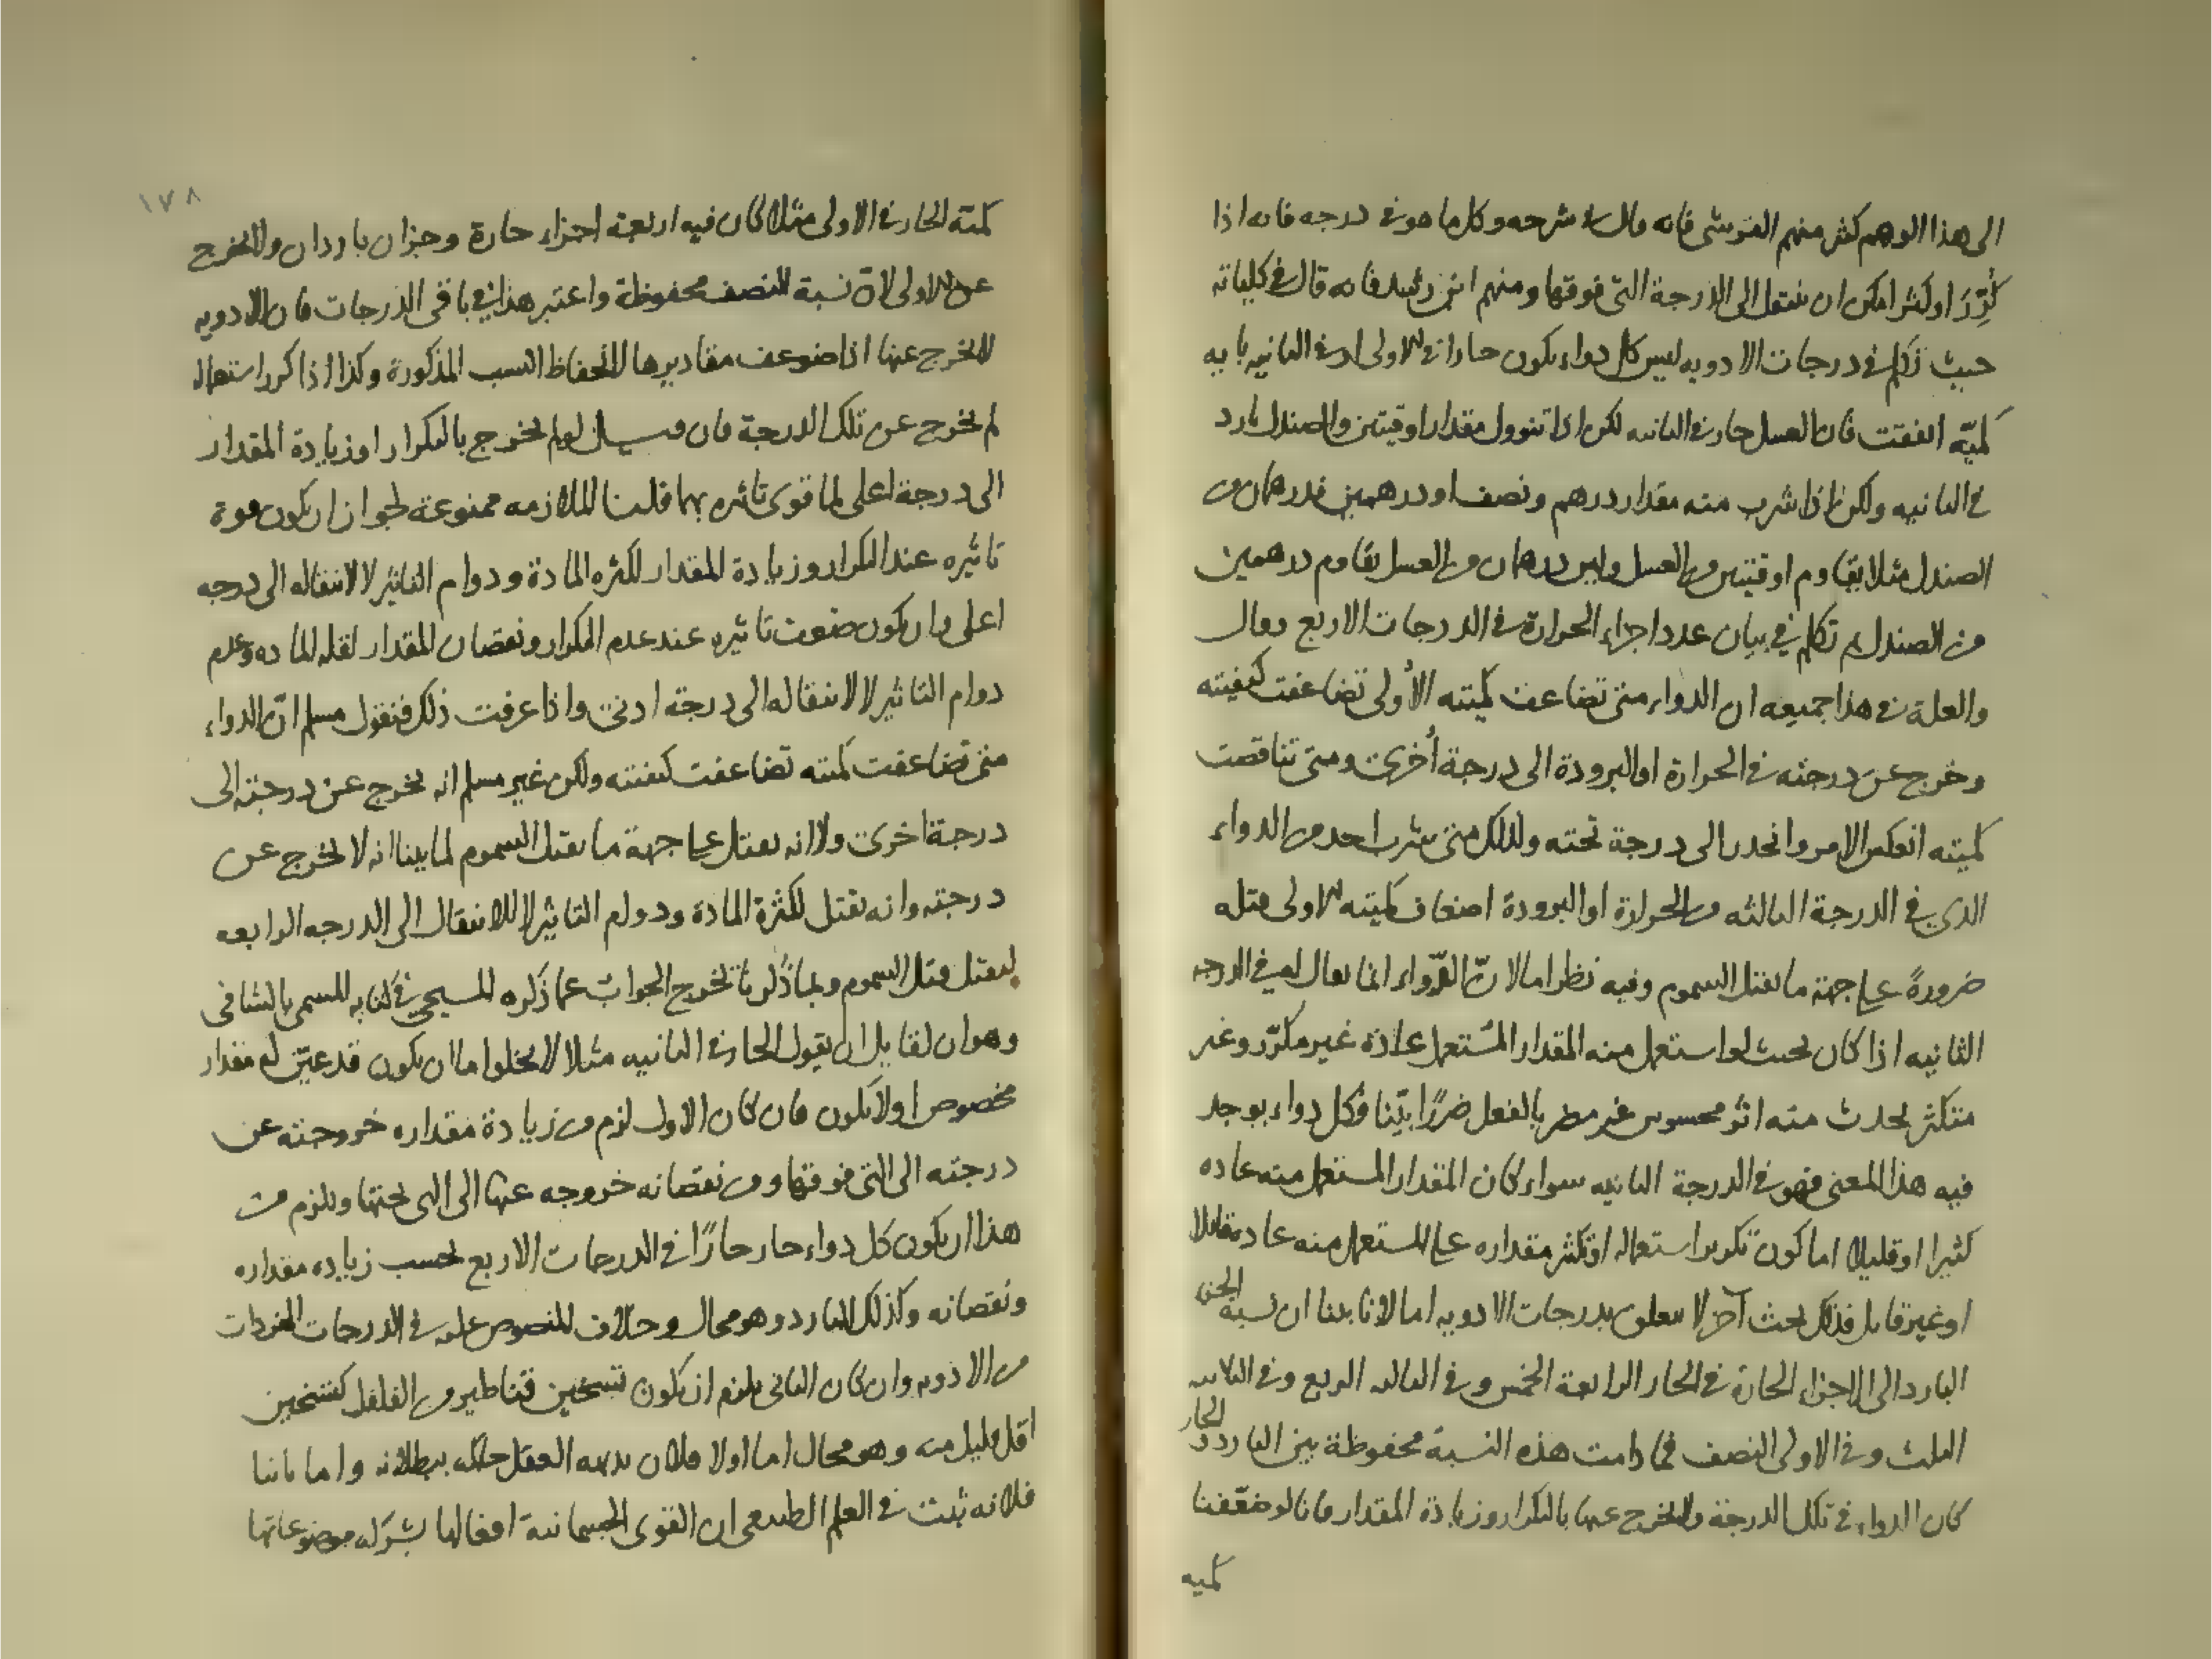 الى هذا الوهم كثر منهم القرشى فانه قال فى شرحه وكل ما هو فى درجه فانه اذا
كُرِّرَ او كثر امكن ان ينتقل الى الدرجة التى فوقها ومنهم ابن رشد فانه قال فى كلياته
حيث تكلم فى درجات الادويه ليس كل دواء يكون حارا فى الاولى او فى الثانيه بايه
كميّه اتفقت فان العسل حار فى الثانيه لكن اذا تنوول مقدار اوقيتين والصندل بارد
فى الثانيه ولكن اذا شرب منه مقدار درهم ونصف او درهمين فدرهمان من
الصندل مثلا يقاوم اوقيتين من العسل وليس درهمان من العسل يقاوم درهمين
من الصندل ثم تكلم فى بيان عدد اجزاء الحرارة فى الدرجات الاربع وقال
والعلة فى هذا جميعه ان الدواء متى تضاعفت كميته الأولى تضاعفت كيفيته
وخرج عن درجته فى الحرارة او البرودة الى درجة أخرى ومتى تناقصت
كميته انعكس الامر وانحدر الى درجة تحته ولذلك متى شرب احد من الدواء
الذى فى الدرجة الثالثه من الحرارة او البرودة اضعاف كميته الاولى قتله
ضرورةً على جهة ما يقتل السموم وفيه نظر اما لا لانّ الدّواء انما يقال له فى الدرجه
الثانيه اذا كان بحيث لو استعمل منه المقدار المُستعمل عادة غير مكرّر وغير
متكثر يحدث منه اثر محسوس غير مضر بالفعل ضررًا بيّنا فكل دواء يوجد
فيه هذا المعنى فهو فى الدرجة الثانيه سواء كان المقدار المستعمل منه عاده
كثيرا او قليلا اما كون تكرير استعماله او تكثر مقداره على المستعمل منه عادة قابلا
او غير قابل فذلك بحث آخر لا يتعلق بدرجات الادويه اما لا نا بينا ان نسبة الجزء
البارد الى الاجزاء الحارة فى الحار الرابعة الخمس وفى الثالثه الربع وفى الثانيه
الثلث وفى الاولى النصف فما دامت هذه النسبة محفوظة بين البارد والحار
كان الدواء فى تلك الدرجة ولا يخرج عنها بالتكرار وزيادة المقدار فانا لو ضعّفنا
كميه
١٧٨
كميّة الحار فى الاولى مثلا كان فيه اربعة اجزاء حارة وجزان باردان ولا يخرج
عن الاولى لان نسبة النصف محفوظة واعتبر هذا فى باقى الدرجات فان الادويه
لا يخرج عنها اذا ضوعف مقاديرها لانحفاظ النسب المذكورة وكذا اذا كرر استعماله
لم يخرج عن تلك الدرجة فان قيل لو لم يخرج بالتكرار او زيادة المقدار
الى درجة اعلى لما قوى تاثيره بهما قلنا الملازمه ممنوعة لجواز ان يكون قوة
تاثيره عند التكرار وزيادة المقدار لكثره المادة ودوام التاثير لا لانتقاله الى درجه
اعلى وان يكون ضعف تاثيره عند عدم التكرار ونقصان المقدار لقله الماده وعدم
دوام التاثير لا لانتقاله الى درجة ادنى واذا عرفت ذلك فنقول مسلم انّ الدواء
متى تضاعفت كميته تضاعفت كيفيته ولكن غير مسلم انه يخرج عن درجته الى
درجة اخرى ولا انه يقتل على جهة ما يقتل السموم لما بينا انه لا يخرج عن
درجته وانه يقتل لكثرة المادة ودوام التاثير لا للانتقال الى الدرجه الرابعه
ليقتل قتل السموم وبما ذكرنا يخرج الجواب عما ذكره المسيحى فى كتابه المسمى بالشافى
وهو ان لقايل ان يقول الحار فى الثانيه مثلا لا يخلوا ما ان يكون قد عيّن له مقدار
مخصوص او لا يكون فان كان الاول لزم من زيادة مقداره خروجه عن
درجته الى التى فوقها ومن نقصانه خروجه عنها الى التى تحتها ويلزم من
هذا ان يكون كل دواء حار حارًا فى الدرجات الاربع بحسب زياده مقداره
ونقصانه وكذلك البارد وهو محال وخلاف المنصوص عليه فى الدرجات المفردات
من الادويه وان كان الثانى يلزم ان يكون تسخين قناطير من الفلفل كتسخين
اقل قليل منه وهو محال اما اولا فلان بديهه العقل حاكمه ببطلانه واما ثانيا
فلانه ثبت فى العلم الطبيعى ان القوى الجسمانية افعالها بشركه موضوعاتها